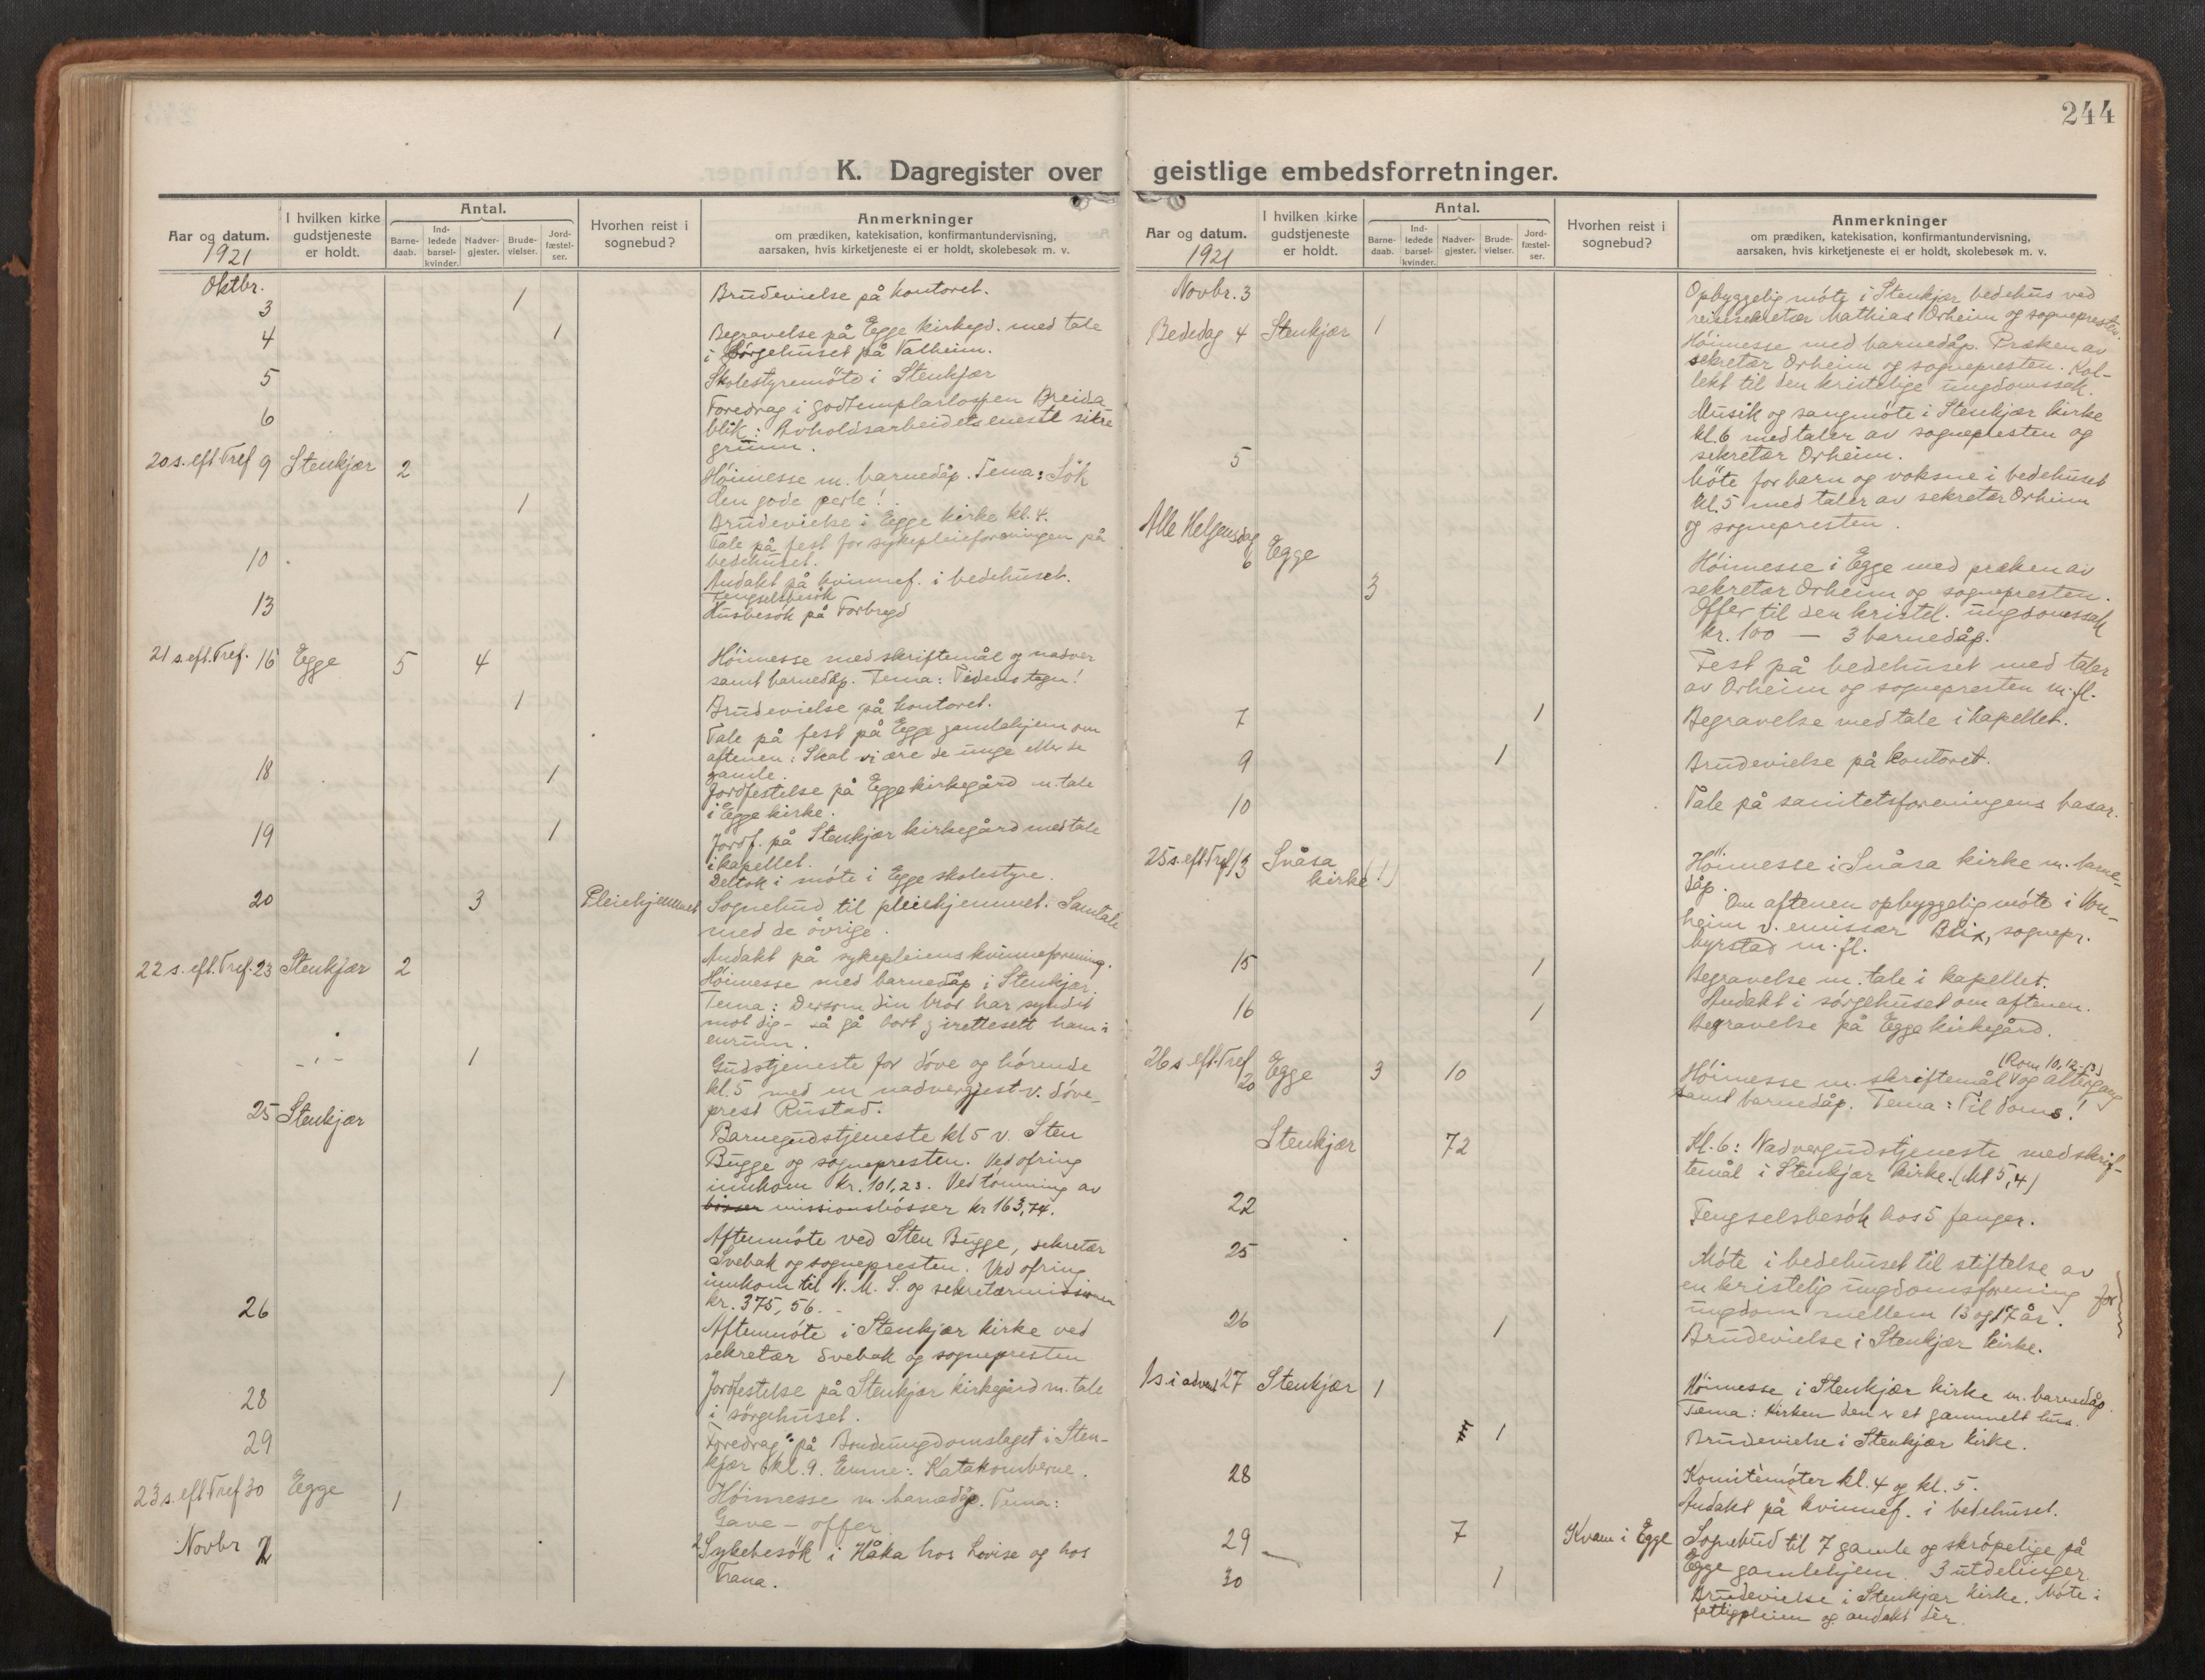 244
K. Dagregister over geistlige embedsforretninger.
Aar og datum.
1921
I hvilken kirke gudstjeneste er holdt.
Antal.
Barnedaab.
Indledede barselkvinder.
Nadvergjester.
Brudevielser.
Jordfæstelser.
Hvorhen reist i sognebud?
Anmerkninger
om prædiken, katekisation, konfirmantundervisning,
aarsaken, hvis kirketjeneste ei er holdt, skolebesøk m. v.
Oktbr.
3 1 Brudevielse på kontoret.
4 1 Begravelse på Egge kirkegd. med tale
i Sörgehuset på Valheim.
5 Skolestyremöte i Stenkjær
6 Foredrag i godtemplarlosjen Breida
blik: Avholdsarbeidets eneste sikre
grunn.
20 s. eft Tref 9 Stenkjær 2 Höimesse m. barnedåp. Tema: Sök
den gode perle!
1 Brudevielse i Egge kirke kl. 4.
Tale på fest for sykepleieforeningen på
bedehuset.
10 Andakt på kvinnef. i bedehuset.
Fengselsbesök
13 Husbesök på Forbregd
21 s. eft. Tref. 16 Egge 5 4 Höimesse med skriftemål og nadver
samt barnedåp. Tema: Tidens tegn!
1 Brudevielse på kontoret.
Tale på fest på Egge gamlehjem om
aftenen: Skal vi ære de unge eller de
gamle.
18 1 Jordfestelse på Egge kirkegård m. tale
i Egge kirke.
19 1 Jordf. på Stenkjær kirkegård med tale
i kapellet.
Deltok i möte i Egge skolestyre.
20 3 Pleiehjemmet Sognebud til pleiehjemmet. Samtale
med de övrige.
Andakt på sykepleiens kvinneforening.
22 s. eft. Tref. 23 Stenkjær 2 Höimesse med barnedåp i Stenkjær.
Tema: Dersom din bror har syndet
mot dig - så gå bort og irettesett ham i
enrum.
- " - 1 Gudstjeneste for döve og hörende
kl. 5 med en nadvergjest v. döve-
prest Rustad.
25 Stenkjær
Barnegudstjeneste kl 5 v. Sten
Bugge og sognepresten. Ved ofring
innkom kr. 101,23. Ved tömming av
bösser missionsbösser kr 163,74.
Aftenmöte ved Sten Bugge, sekretær
Svebak og sognepresten. Ved ofring
innkom til N. M. S. og sekretærmissionen
kr. 375,56. -
26 Aftenmöte i Stenkjær kirke ved
sekretær Svebak og sognepresten
28 1 Jordfestelse på Stenkjær kirkegård m. tale
i sörgehuset.
29 Foredrag på Bondeungdomslaget i Sten-
kjær kl. 9. Emne: Katakomberne.
23 s. eft Tref 30 Egge 1 Höimesse m. barnedåp. Tema:
Gave - offer
Novbr 2 2 Sykebesök i Håka hos Lovise og hos
Trana.
Aar og datum.
1921
I hvilken kirke gudstjeneste er holdt.
Antal.
Barnedaab.
Indledede barselkvinder.
Nadvergjester.
Brudevielser.
Jordfæstelser.
Hvorhen reist i sognebud?
Anmerkninger
om prædiken, katekisation, konfirmantundervisning,
aarsaken, hvis kirketjeneste ei er holdt, skolebesøk m. v.
Novbr. 3 Opbyggelig möte i Stenkjær bedehus ved
reisesekretær Mathias Orheim og sognepresten.
Bededag 4 Stenkjær 1 Höimesse med barnedåp. Præken av
sekretær Orheim og sognepresten. Kol-
lekt til den kristelige ungdomssak.
Musik og sangmöte i Stenkjær kirke
kl. 6 med taler av sognepresten og
sekretær Orheim.
5 Möte for barn og voksne i bedehuset
kl. 5 med taler av sekretær Orheim
og sognepresten.
Alle Helgensdag
6 Egge 3 Höimesse i Egge med præken av
sekretær Orheim og sognepresten.
Offer til den kristel. ungdomssak
kr. 100 - 3 barnedåp.
Fest på bedehuset med taler
av Orheim og sognepresten m. fl.
7 1 Begravelse med tale i kapellet.
9 1 Brudevielse på kontoret.
10 Tale på sanitetsforeningens basar.
25 s. eft Tref 13 Snåsa
kirke (!) Höimesse i Snåsa kirke m. barne-
dåp.
Om aftenen opbyggelig möte i Von-
heim v. emissær Blix, sognepr.
byrstad m. fl.
15 1 Begravelse m. tale i kapellet.
Andakt i sörgehuset om aftenen.
16 1 Begravelse på Egge kirkegård.
26 s. eft. Tref
20 Egge 3 10 (Rom 10,12-13)
Höimesse m. skriftemål og altergang
samt barnedåp. Tema: Til doms!
Stenkjær 72 Kl. 6: Nadvergudstjeneste med skrif-
temål i Stenkjær kirke. (Mt 5,4)
22 Fengselsbesök hos 5 fanger.
25 Möte i bedehuset til stiftelse av
en kristelig ungdomsforening for
ungdom mellem 13 og 17 år.
26 1 Brudevielse i Stenkjær kirke.
1 s. i advent 27 Stenkjær 1 Höimesse i Stenkjær kirke m. barnedåp.
Tema: Kirken den er et gammelt hus.
1 Brudevielse i Stenkjær kirke.
28 Komitémöter kl. 4 og kl. 5.
Andakt på kvinnef. i bedehuset.
29 7 Kvam i Egge Sognebud til 7 gamle og skröpelige på
Egge gamlehjem. 3 utdelinger.
30 1 Brudevielse i Stenkjær kirke. Möte i
fattigpleien og andakt der.